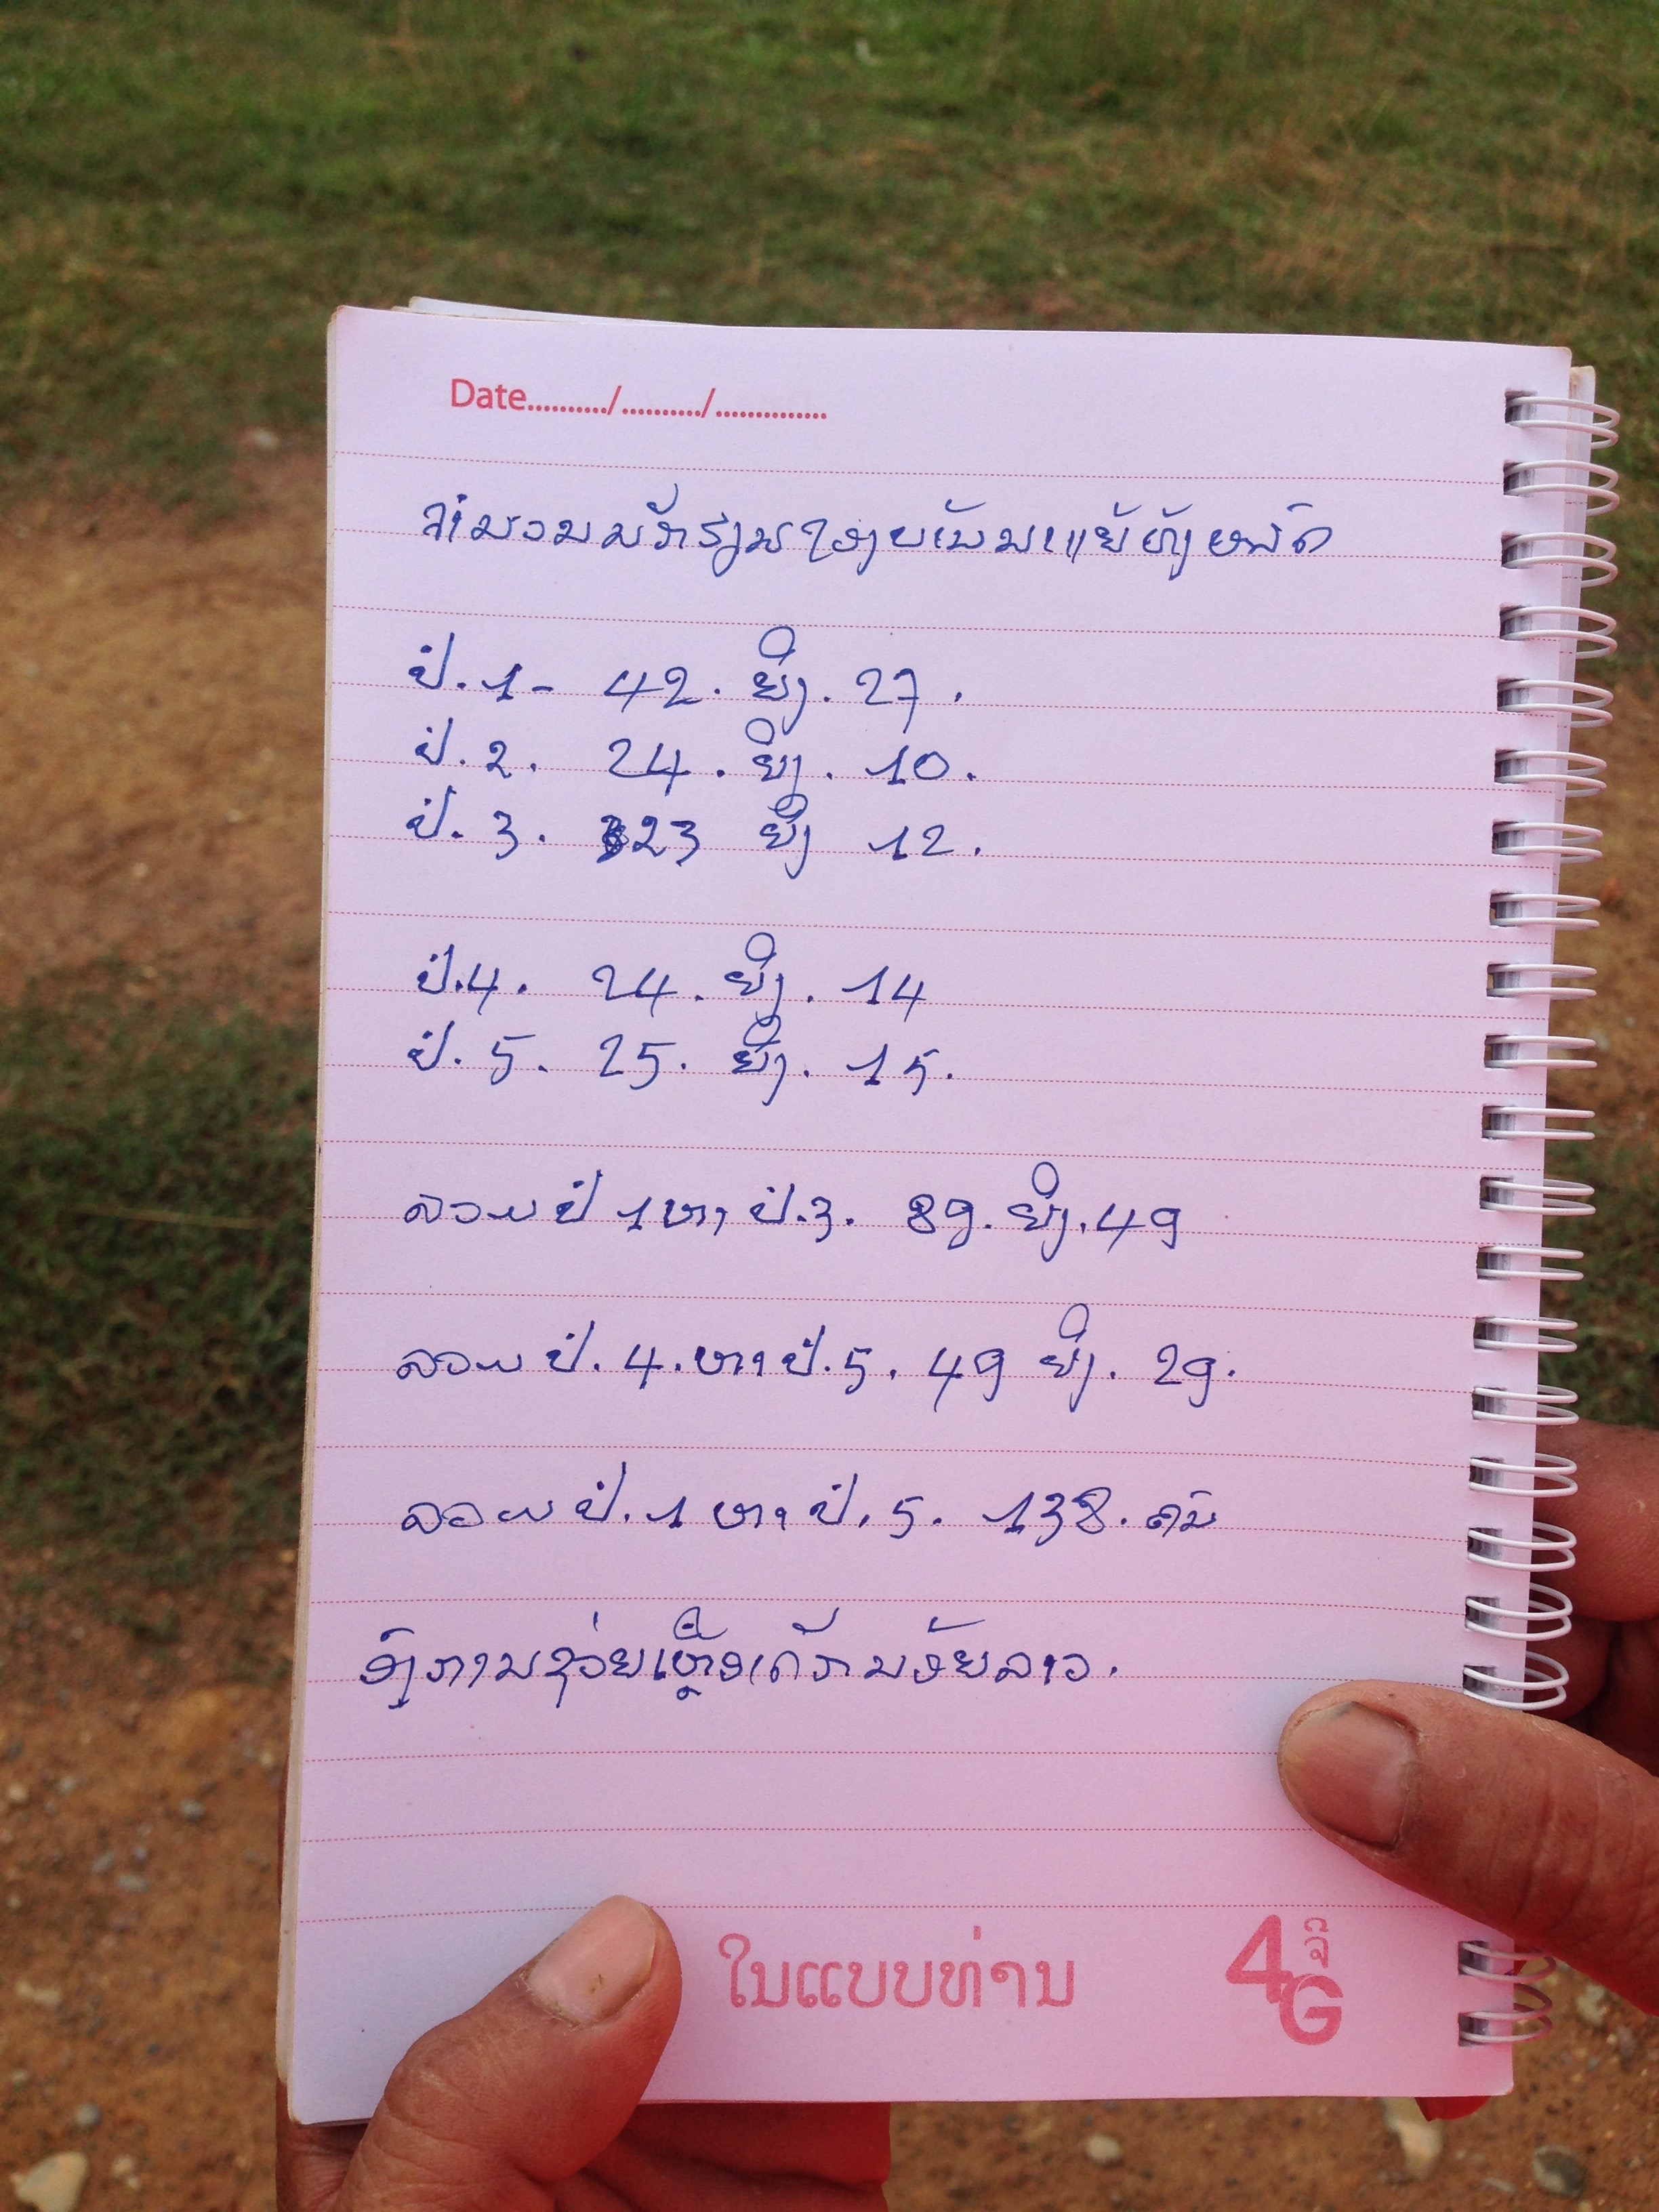 Date........../........../..............
ຈຳນວນນັກຮຽນ ຫັງຫມົດ
ປ.1- 42. ຍິງ. 27.
ປ. 2. 24. ຍິງ. 10.
ປ. 3. 23 ຍິງ 12.
ປ.4. 24. ຍິງ. 14
ປ. 5. 25. ຍິງ. 15.
ລວມ ປ 1 ຫາ ປ.3. 89. ຍິງ. 49
ລວມ ປ. 4. ຫາ ປ. 5. 49 ຍິງ. 29.
ລວມ ປ. 1 ຫາ ປ. 5. 138. ຄົນ
ອົງການຊ່ວຍເຫຼືອເດັກນ້ອຍລາວ.
ໃນແບບທ່ານ 4G ຈີ